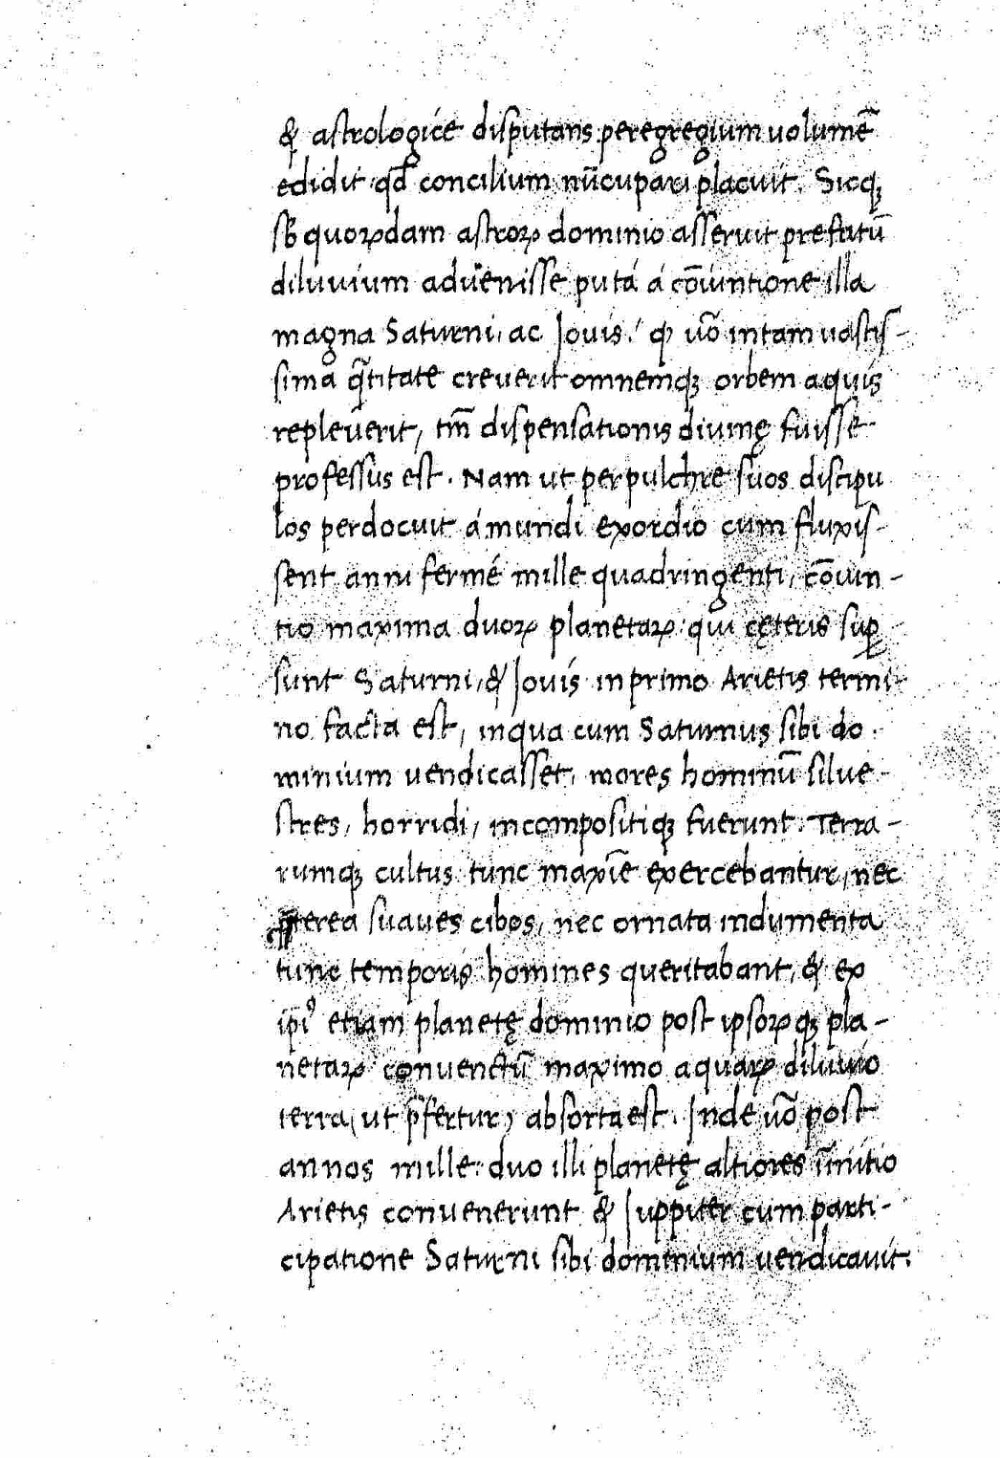 & astrologicé disputans peregregium uolumē
edidit qđ concilium nūcupari placuit. Sicq;
sƀ quoꝝdam astroꝝ dominio asseruit prefatū
diluuium aduenisse putá á cōiuntione illa
magna Saturni, ac Jouis. qꝫ uō in tam uastis-
sima q̄titate creuerit omnemq; orbem aquis
repleuerit, tm̄ dispensationis diuinę fuisse
professus est. Nam ut perpulchre suos discipu
los perdocuit á mundi exordio cum fluxis-
sent anni fermé mille quadringenti, cōiun-
tio maxima duoꝝ planetaꝝ qui cęteris suꝑ
sunt Saturni, & Jouis in primo Arietis termi-
no facta est, in qua cum Saturnus sibi do-
minium uendicasset, mores hominū silue-
stres, horridi, incompositiq; fuerunt. Terra-
rumq; cultus tunc maxīe exercebantur, nec
p̄terea suaues cibos, nec ornata indumenta
tunc temporis homines queritabant, & ex
ip̄iꝰ etiam planetę dominio post ipsoꝝq; pla-
netaꝝ conuenctū maximo aquaꝝ diluuio
terra (ut p̄fertur) absorta est. Inde uō post
annos mille: duo illi planetę altiores in initio
Arietis conuenerunt & Juppiter cum parti-
cipatione Saturni sibi dominium uendicauit.